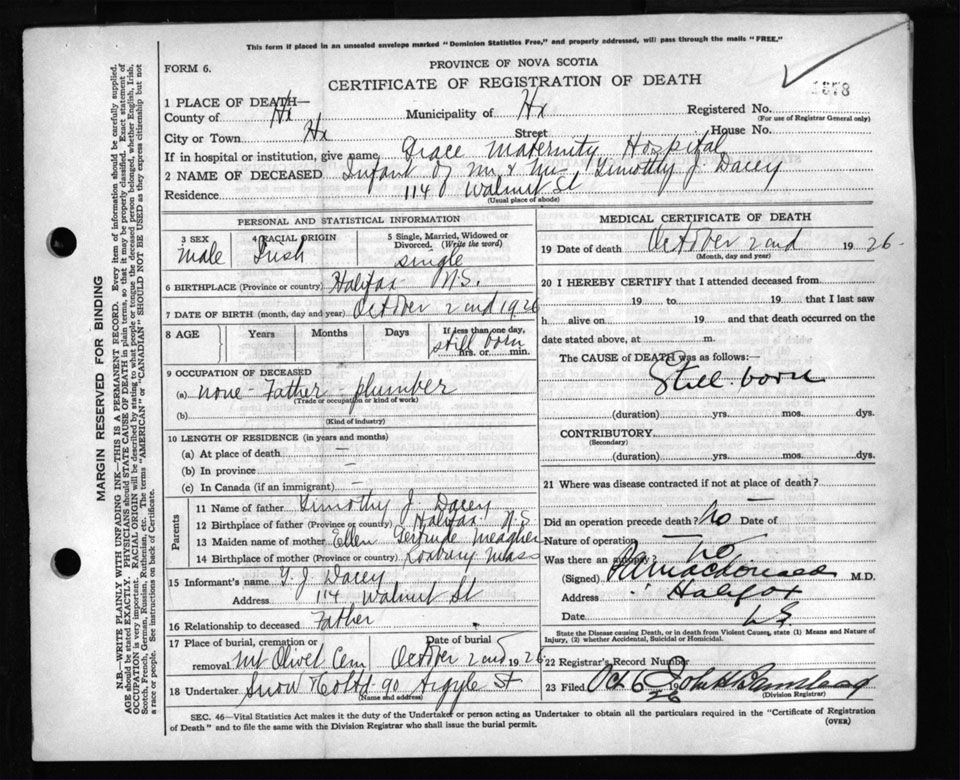 This form if placed in an unsealed envelope marked "Dominion Statistics Free," and properly addressed, will pass through the mails "FREE."
FORM 6.
PROVINCE OF NOVA SCOTIA
CERTIFICATE OF REGISTRATION OF DEATH
1378
1 PLACE OF DEATH—
County of Hx Municipality of Hx Registered No.
(For use of Registrar General only)
City or Town Hx Street House No.
If in hospital or institution, give name Grace Maternity Hospital
2 NAME OF DECEASED Infant of Mr & Mrs Timothy J. Dacey
Residence 114 Walnut St
(Usual place of abode)
PERSONAL AND STATISTICAL INFORMATION
3 SEX 4 RACIAL ORIGIN 5 Single, Married, Widowed or Divorced. (Write the word)
male Irish single
6 BIRTHPLACE (Province or country) Halifax N.S.
7 DATE OF BIRTH (month, day and year) October 2nd 1926
8 AGE Years Months Days If less than one day,
still born
hrs. or min.
9 OCCUPATION OF DECEASED
(a) none - Father - plumber
(Trade or occupation or kind of work)
(b)
(Kind of industry)
10 LENGTH OF RESIDENCE (in years and months)
(a) At place of death —
(b) In province —
(c) In Canada (if an immigrant) —
Parents
11 Name of father Timothy J. Dacey
12 Birthplace of father (Province or country) Halifax N.S
13 Maiden name of mother Ellen Gertrude Meagher
14 Birthplace of mother (Province or country) Roxbury Mass
15 Informant's name T. J Dacey
Address 114 Walnut St
16 Relationship to deceased Father
17 Place of burial, cremation or removal Mt Olivet Cem Date of burial October 2nd 1926
18 Undertaker Snow & Co Ltd 90 Argyle St
(Name and address)
MEDICAL CERTIFICATE OF DEATH
19 Date of death October 2nd 1926
(Month, day and year)
20 I HEREBY CERTIFY that I attended deceased from
19 to 19 that I last saw
h alive on 19 and that death occurred on the
date stated above, at m.
The CAUSE of DEATH was as follows:—
Still-born
(duration) yrs. mos. dys.
CONTRIBUTORY
(Secondary)
(duration) yrs. mos. dys.
21 Where was disease contracted if not at place of death?
—
Did an operation precede death? No Date of
Nature of operation —
Was there an autopsy? No
(Signed) Macdonald M.D.
Address Halifax
Date
State the Disease causing Death, or in death from Violent Causes, state (1) Means and Nature of Injury, (2) whether Accidental, Suicidal or Homicidal.
22 Registrar's Record Number
23 Filed Oct 6 1926 John
(Division Registrar)
SEC. 46—Vital Statistics Act makes it the duty of the Undertaker or person acting as Undertaker to obtain all the particulars required in the "Certificate of Registration
of Death" and to file the same with the Division Registrar who shall issue the burial permit. (OVER)
MARGIN RESERVED FOR BINDING
N.B.—WRITE PLAINLY WITH UNFADING INK—THIS IS A PERMANENT RECORD. Every item of information should be carefully supplied.
AGE should be stated EXACTLY. PHYSICIANS should STATE CAUSE OF DEATH in plain terms, so that it may be properly classified. Exact statement of
OCCUPATION is very important. RACIAL ORIGIN will be described by stating to what people or tongue the deceased person belonged, whether English, Irish,
Scotch, French, German, Russian, Ruthenian, etc. The terms "AMERICAN" or "CANADIAN" SHOULD NOT BE USED as they express citizenship but not
a race or people. See instructions on back of Certificate.